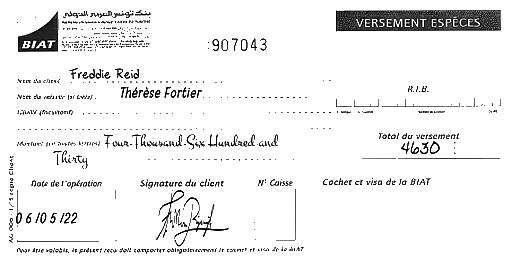 بنك تونس العربي الدولي
BIAT
VERSEMENT ESPÈCES
907043
Nom du client Freddie Reid
Nom du remettant (si tiers) : Thérèse Fortier
R.I.B.
Montant (en toutes lettres) Four-Thousand Six Hundred and
Thirty
Total du versement
4630
Date de l'opération
Signature du client
N° Caisse
Cachet et visa de la BIAT
06/05/22
Pour être valable, le présent reçu doit comporter obligatoirement le cachet et visa de la BIAT